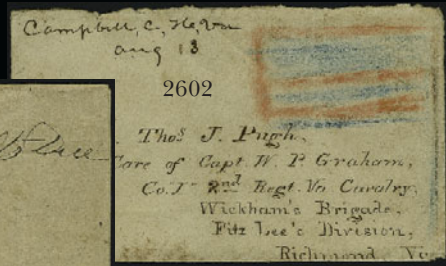 Campbell, C, H, Va
aug 13
2602
Thos J. Pugh,
Care of Capt. W. P. Graham,
Co. I 2nd Regt. Va Cavalry,
Wickham's Brigade,
Fitz Lee's Division,
Richmond, Va